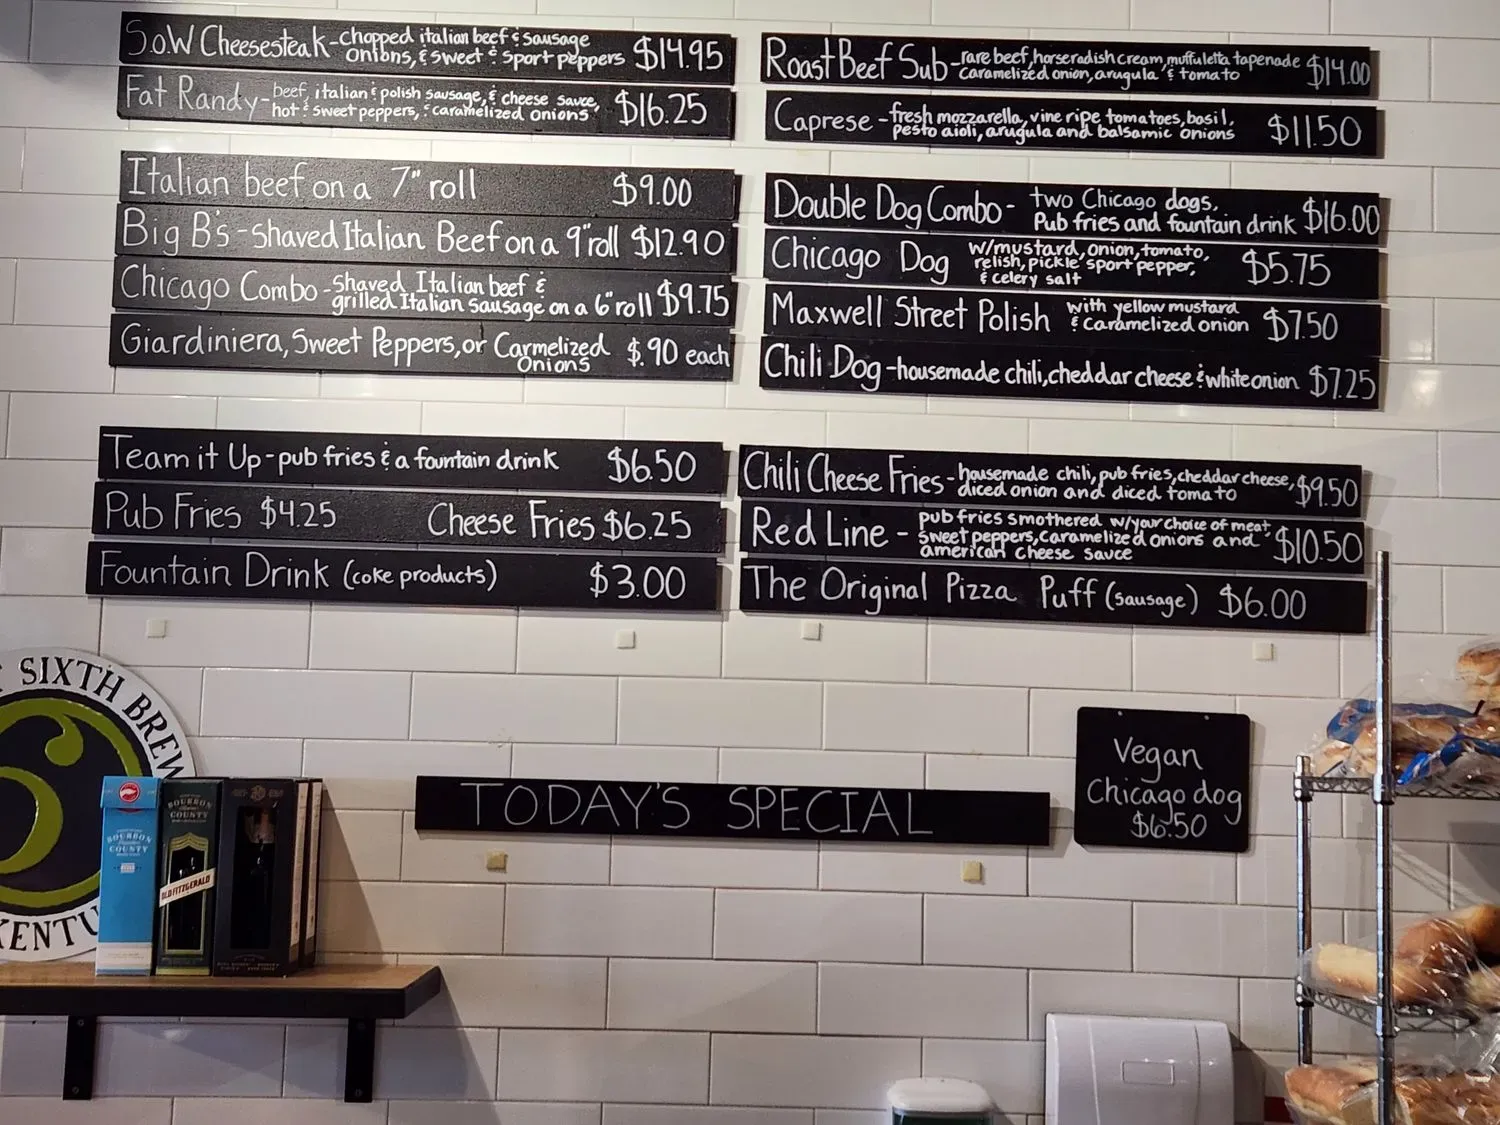 S.o.W Cheesesteak-chopped italian beef & sausage
onions, & sweet & sport peppers $14.95
Fat Randy-beef, italian & polish sausage, & cheese sauce,
hot & sweet peppers, & caramelized onions $16.25
Italian beef on a 7" roll $9.00
Big B's-shaved Italian Beef on a 9" roll $12.90
Chicago Combo-shaved Italian beef &
grilled Italian sausage on a 6" roll $9.75
Giardiniera, Sweet Peppers, or Carmelized
Onions $.90 each
Team it Up-pub fries & a fountain drink $6.50
Pub Fries $4.25 Cheese Fries $6.25
Fountain Drink (coke products) $3.00
Roast Beef Sub-rare beef, horseradish cream, muffuletta tapenade
caramelized onion, arugula & tomato $14.00
Caprese-fresh mozzarella, vine ripe tomatoes, basil,
pesto aioli, arugula and balsamic onions $11.50
Double Dog Combo- two Chicago dogs,
Pub fries and fountain drink $16.00
Chicago Dog w/mustard, onion, tomato,
relish, pickle, sport pepper,
& celery salt $5.75
Maxwell Street Polish with yellow mustard
& caramelized onion $7.50
Chili Dog-housemade chili, cheddar cheese & white onion $7.25
Chili Cheese Fries-housemade chili, pub fries, cheddar cheese,
diced onion and diced tomato $9.50
Red Line - pub fries smothered w/your choice of meat,
sweet peppers, caramelized onions and
american cheese sauce $10.50
The Original Pizza Puff (sausage) $6.00
SIXTH BREW
KENTU
BOURBON
COUNTY
BOURBON
COUNTY
OLD FITZGERALD
TODAY'S SPECIAL
Vegan
Chicago dog
$6.50